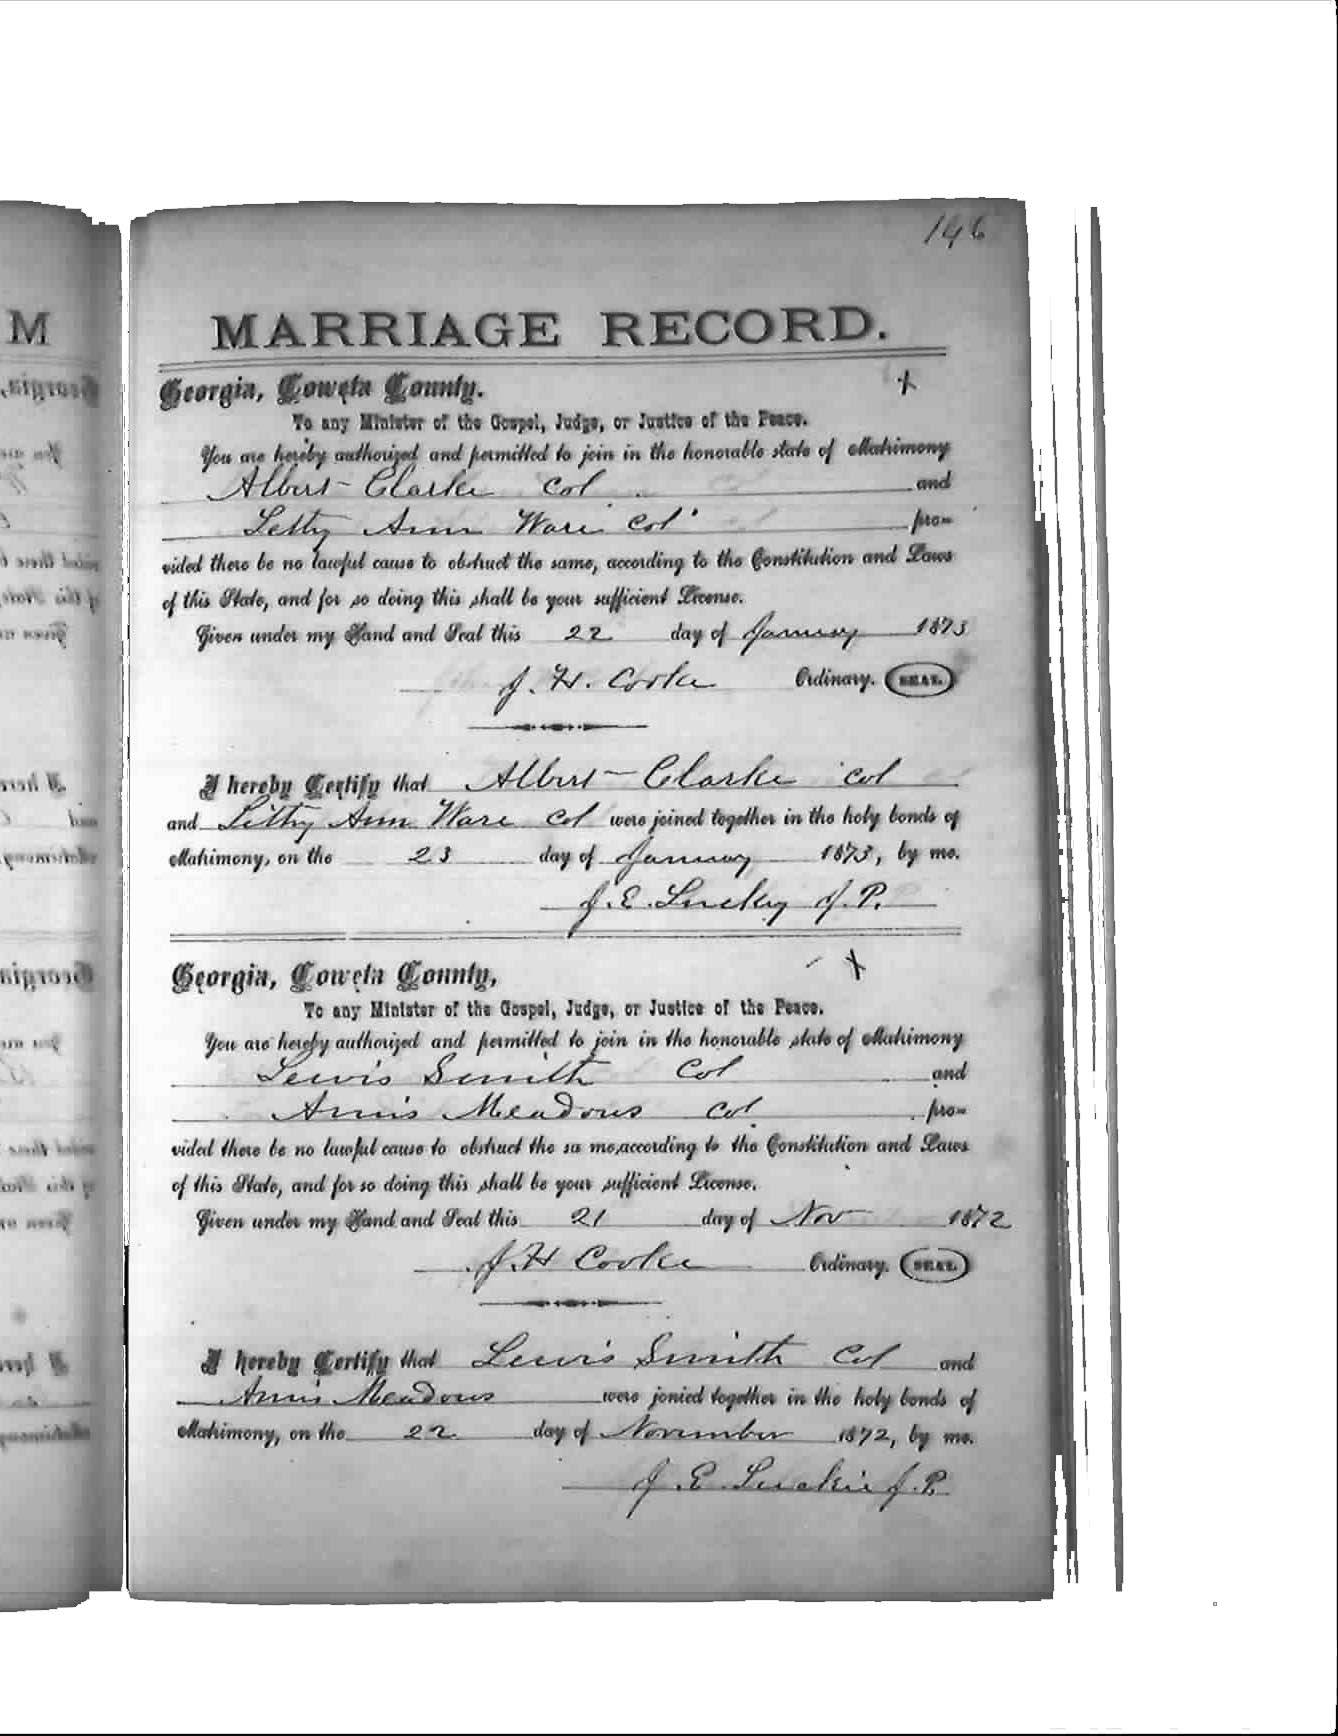 146
MARRIAGE RECORD.
Georgia, Coweta County.
To any Minister of the Gospel, Judge, or Justice of the Peace.
You are hereby authorized and permitted to join in the honorable state of Matrimony
Albert Clarke Col and
Letty Ann Ware Col pro-
vided there be no lawful cause to obstruct the same, according to the Constitution and Laws
of this State, and for so doing this shall be your sufficient License.
Given under my Hand and Seal this 22 day of January 1873
J. H. Cooke Ordinary. SEAL.
I hereby Certify that Albert Clarke Col
and Letty Ann Ware Col were joined together in the holy bonds of
Matrimony, on the 23 day of January 1873, by me.
J. E. Luckey J. P.
Georgia, Coweta County,
To any Minister of the Gospel, Judge, or Justice of the Peace.
You are hereby authorized and permitted to join in the honorable state of Matrimony
Lewis Smith Col and
Annis Meadows Col pro-
vided there be no lawful cause to obstruct the sa me,according to the Constitution and Laws
of this State, and for so doing this shall be your sufficient License.
Given under my Hand and Seal this 21 day of Nov 1872
J. H Cooke Ordinary. SEAL.
I hereby Certify that Lewis Smith Col and
Annis Meadows were jonied together in the holy bonds of
Matrimony, on the 22 day of November 1872, by me.
J. E. Luckie J. P.